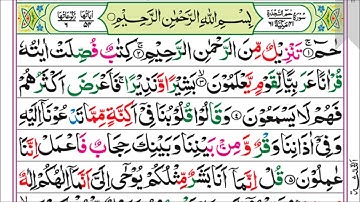 بِسْمِ اللّٰهِ الرَّحْمٰنِ الرَّحِيْمِ
حٰمٓ ۚ تَنْزِيْلٌ مِّنَ الرَّحْمٰنِ الرَّحِيْمِ ۚ كِتٰبٌ فُصِّلَتْ اٰيٰتُهٗ
قُرْاٰنًا عَرَبِيًّا لِّقَوْمٍ يَّعْلَمُوْنَ ۙ بَشِيْرًا وَّنَذِيْرًا ۚ فَاَعْرَضَ اَكْثَرُهُمْ
فَهُمْ لَا يَسْمَعُوْنَ وَقَالُوْا قُلُوْبُنَا فِيْٓ اَكِنَّةٍ مِّمَّا تَدْعُوْنَآ اِلَيْهِ
وَفِيْٓ اٰذَانِنَا وَقْرٌ وَّمِنْۢ بَيْنِنَا وَبَيْنِكَ حِجَابٌ فَاعْمَلْ اِنَّنَا
عٰمِلُوْنَ قُلْ اِنَّمَآ اَنَا بَشَرٌ مِّثْلُكُمْ يُوْحٰٓى اِلَيَّ اَنَّمَآ اِلٰهُكُمْ اِلٰهٌ